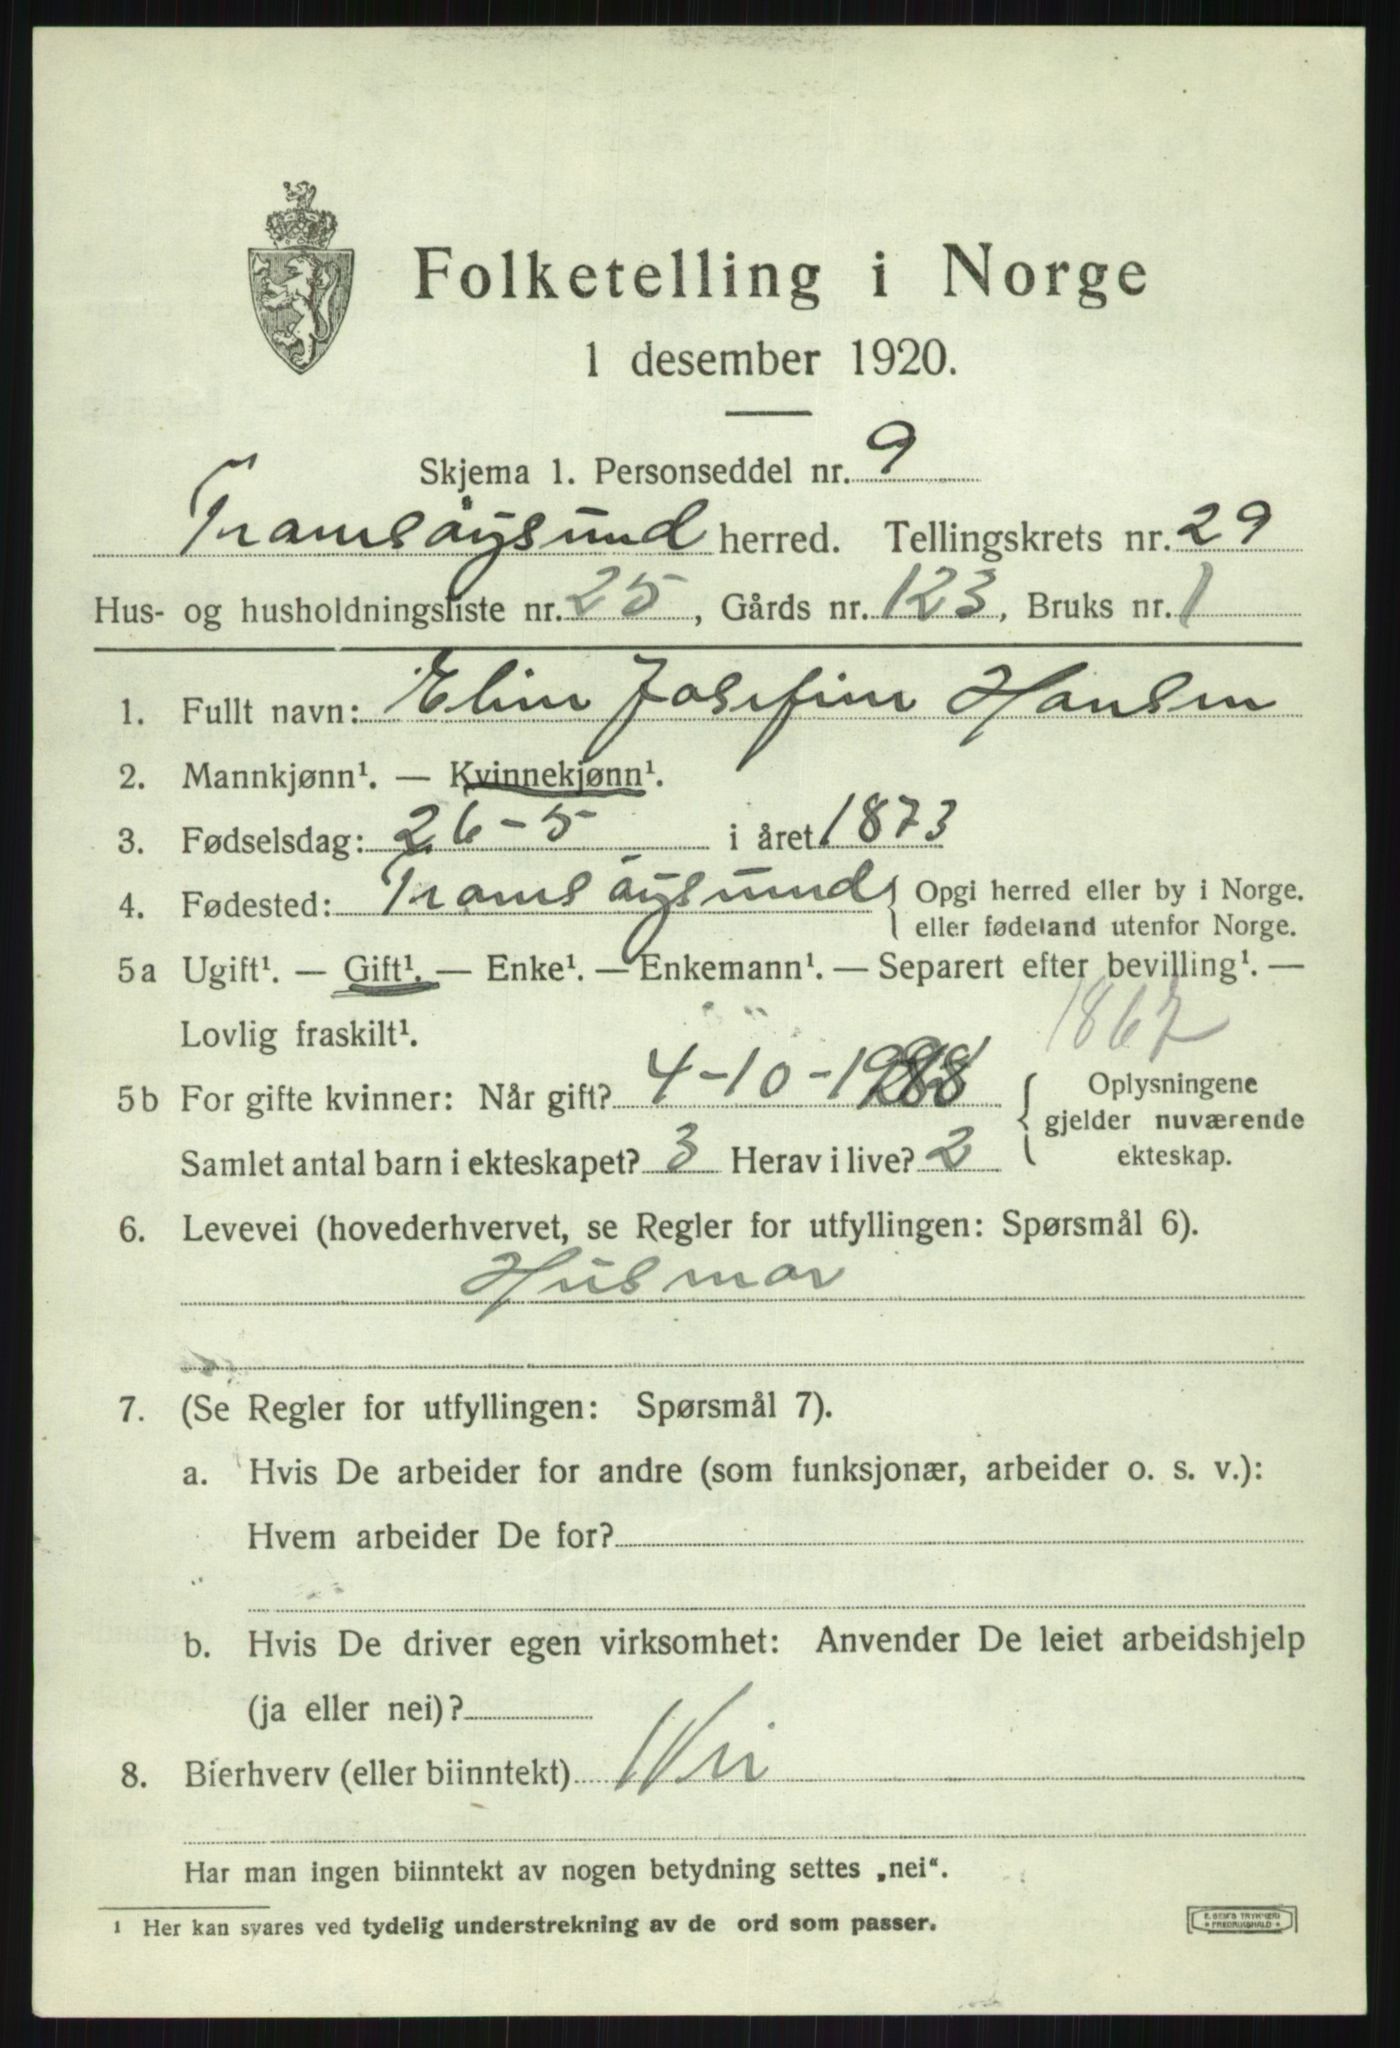 Folketelling i Norge
1 desember 1920.
Skjema 1. Personseddel nr. 9
Tromsøysund herred. Tellingskrets nr. 29
Hus- og husholdningsliste nr. 25, Gårds nr. 123, Bruks nr. 1
1. Fullt navn: Eline Josefine Hansen
2. Mannkjønn¹. — Kvinnekjønn¹.
3. Fødselsdag: 26-5 i året 1873
4. Fødested: Tromsøysund { Opgi herred eller by i Norge.
eller fødeland utenfor Norge.
5a Ugift¹. — Gift¹. — Enke¹. — Enkemann¹. — Separert efter bevilling¹. —
Lovlig fraskilt¹.
5b For gifte kvinner: Når gift? 4-10-
Samlet antal barn i ekteskapet? 3 Herav i live? 2
{ Oplysningene
gjelder nuværende
ekteskap.
6. Levevei (hovederhvervet, se Regler for utfyllingen: Spørsmål 6).
Husmor
7. (Se Regler for utfyllingen: Spørsmål 7).
a. Hvis De arbeider for andre (som funksjonær, arbeider o. s. v.):
Hvem arbeider De for?
b. Hvis De driver egen virksomhet: Anvender De leiet arbeidshjelp
(ja eller nei)?
8. Bierhverv (eller biinntekt) Nei
Har man ingen biinntekt av nogen betydning settes „nei“.
¹ Her kan svares ved tydelig understrekning av de ord som passer.